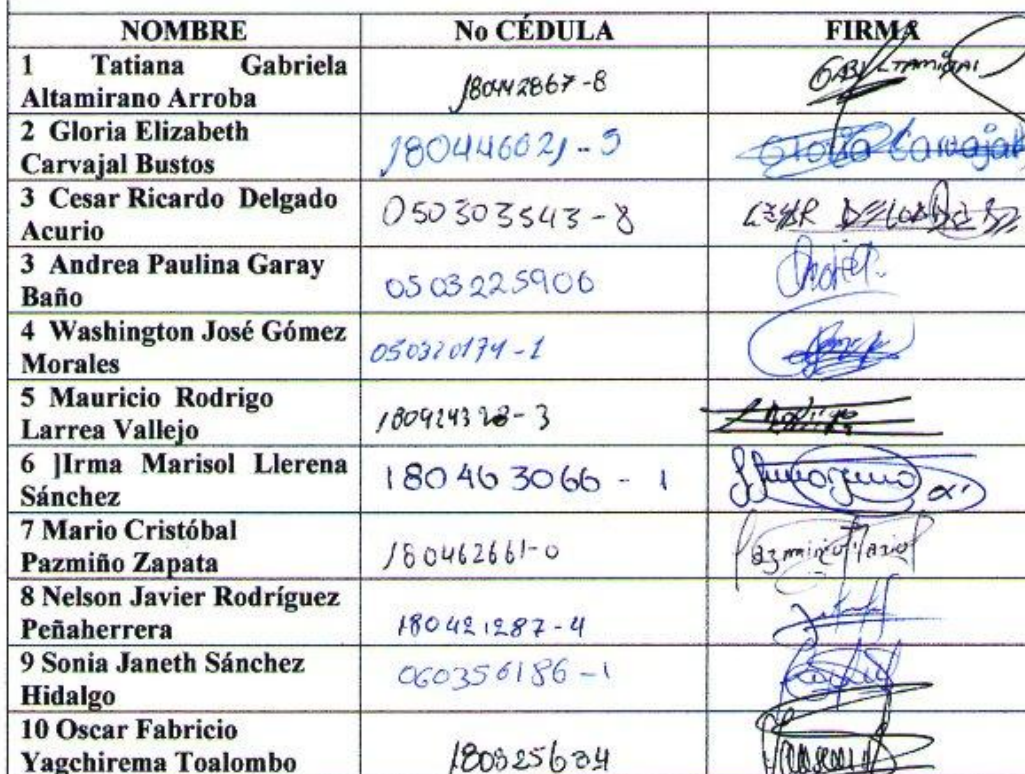 NOMBRE No CÉDULA FIRMA
1 Tatiana Gabriela
Altamirano Arroba
180442867-8
2 Gloria Elizabeth
Carvajal Bustos
Gloria Carvajal
3 Cesar Ricardo Delgado
Acurio
050303543-8
3 Andrea Paulina Garay
Baño
0503225906
4 Washington José Gómez
Morales
050320174-1
5 Mauricio Rodrigo
Larrea Vallejo
6 ]Irma Marisol Llerena
Sánchez
180463066-1
7 Mario Cristóbal
Pazmiño Zapata
180462661-0
Pazmiño Mario
8 Nelson Javier Rodríguez
Peñaherrera
180421287-4
9 Sonia Janeth Sánchez
Hidalgo
060356186-1
10 Oscar Fabricio
Yagchirema Toalombo